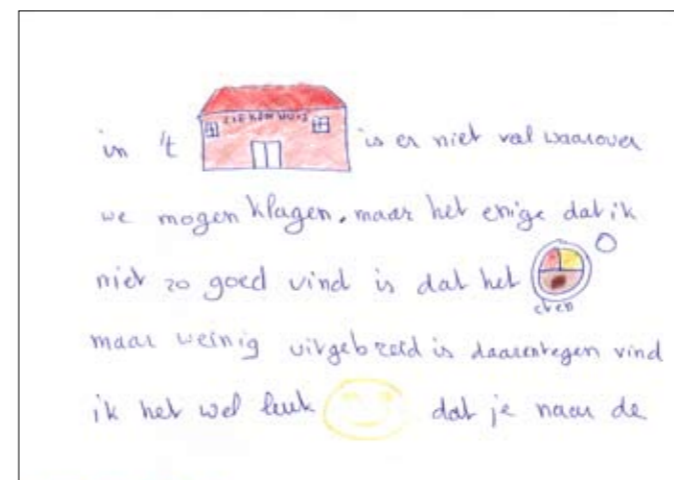 in 't ZIEKENHUIS is er niet val waarover
we mogen klagen, maar het enige dat ik
niet zo goed vind is dat het
eten
maar weinig uitgebreid is daarentegen vind
ik het wel leuk dat je naar de